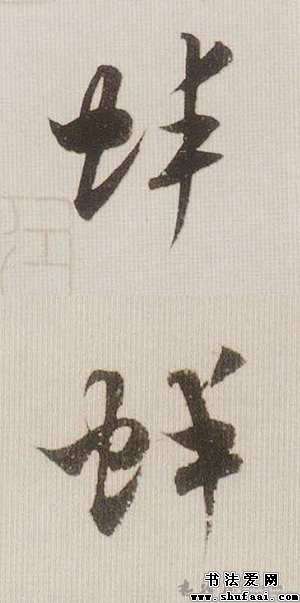 蚌
蚌
书法爱网
www.shufaai.com